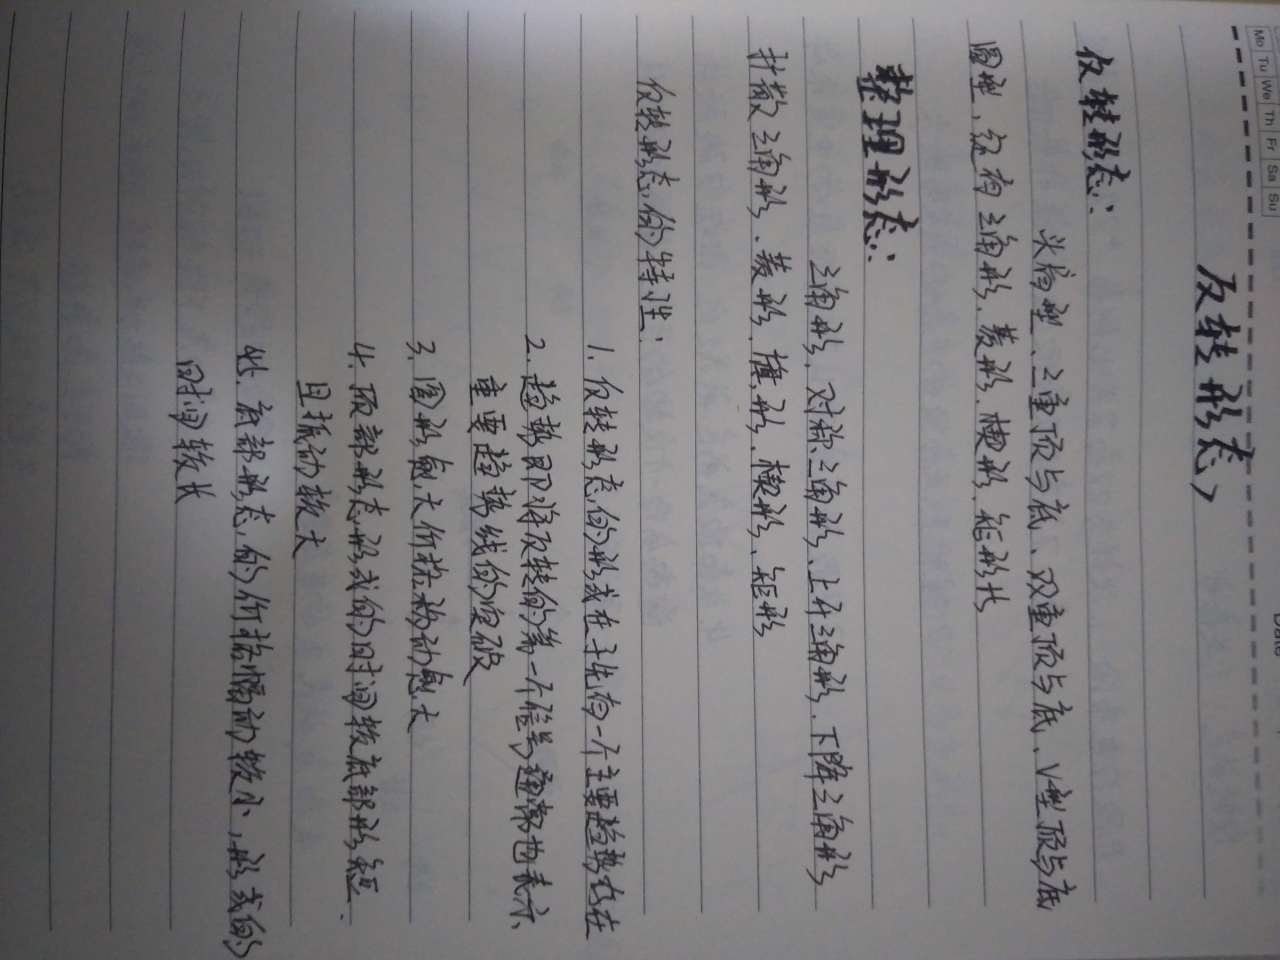 Mo Tu We Th Fr Sa Su
Date
反转形态
反转形态:
头肩型、三重顶与底、双重顶与底、V型顶与底
圆型、直角三角形、菱形、楔形、矩形状
整理形态:
三角形、对称三角形、上升三角形、下降三角形
扩散三角形、菱形、旗形、楔形、矩形
反转形态的特性:
1. 反转形态的形成在于先有一个主要趋势存在
2. 趋势即将反转的第一个信号通常也表示
重要趋势线的突破
3. 图形愈大价格移动愈大
4. 顶部形态形成的时间较底部形短.
且振动较大
5. 底部形态的价格幅动较小,形成的
时间较长